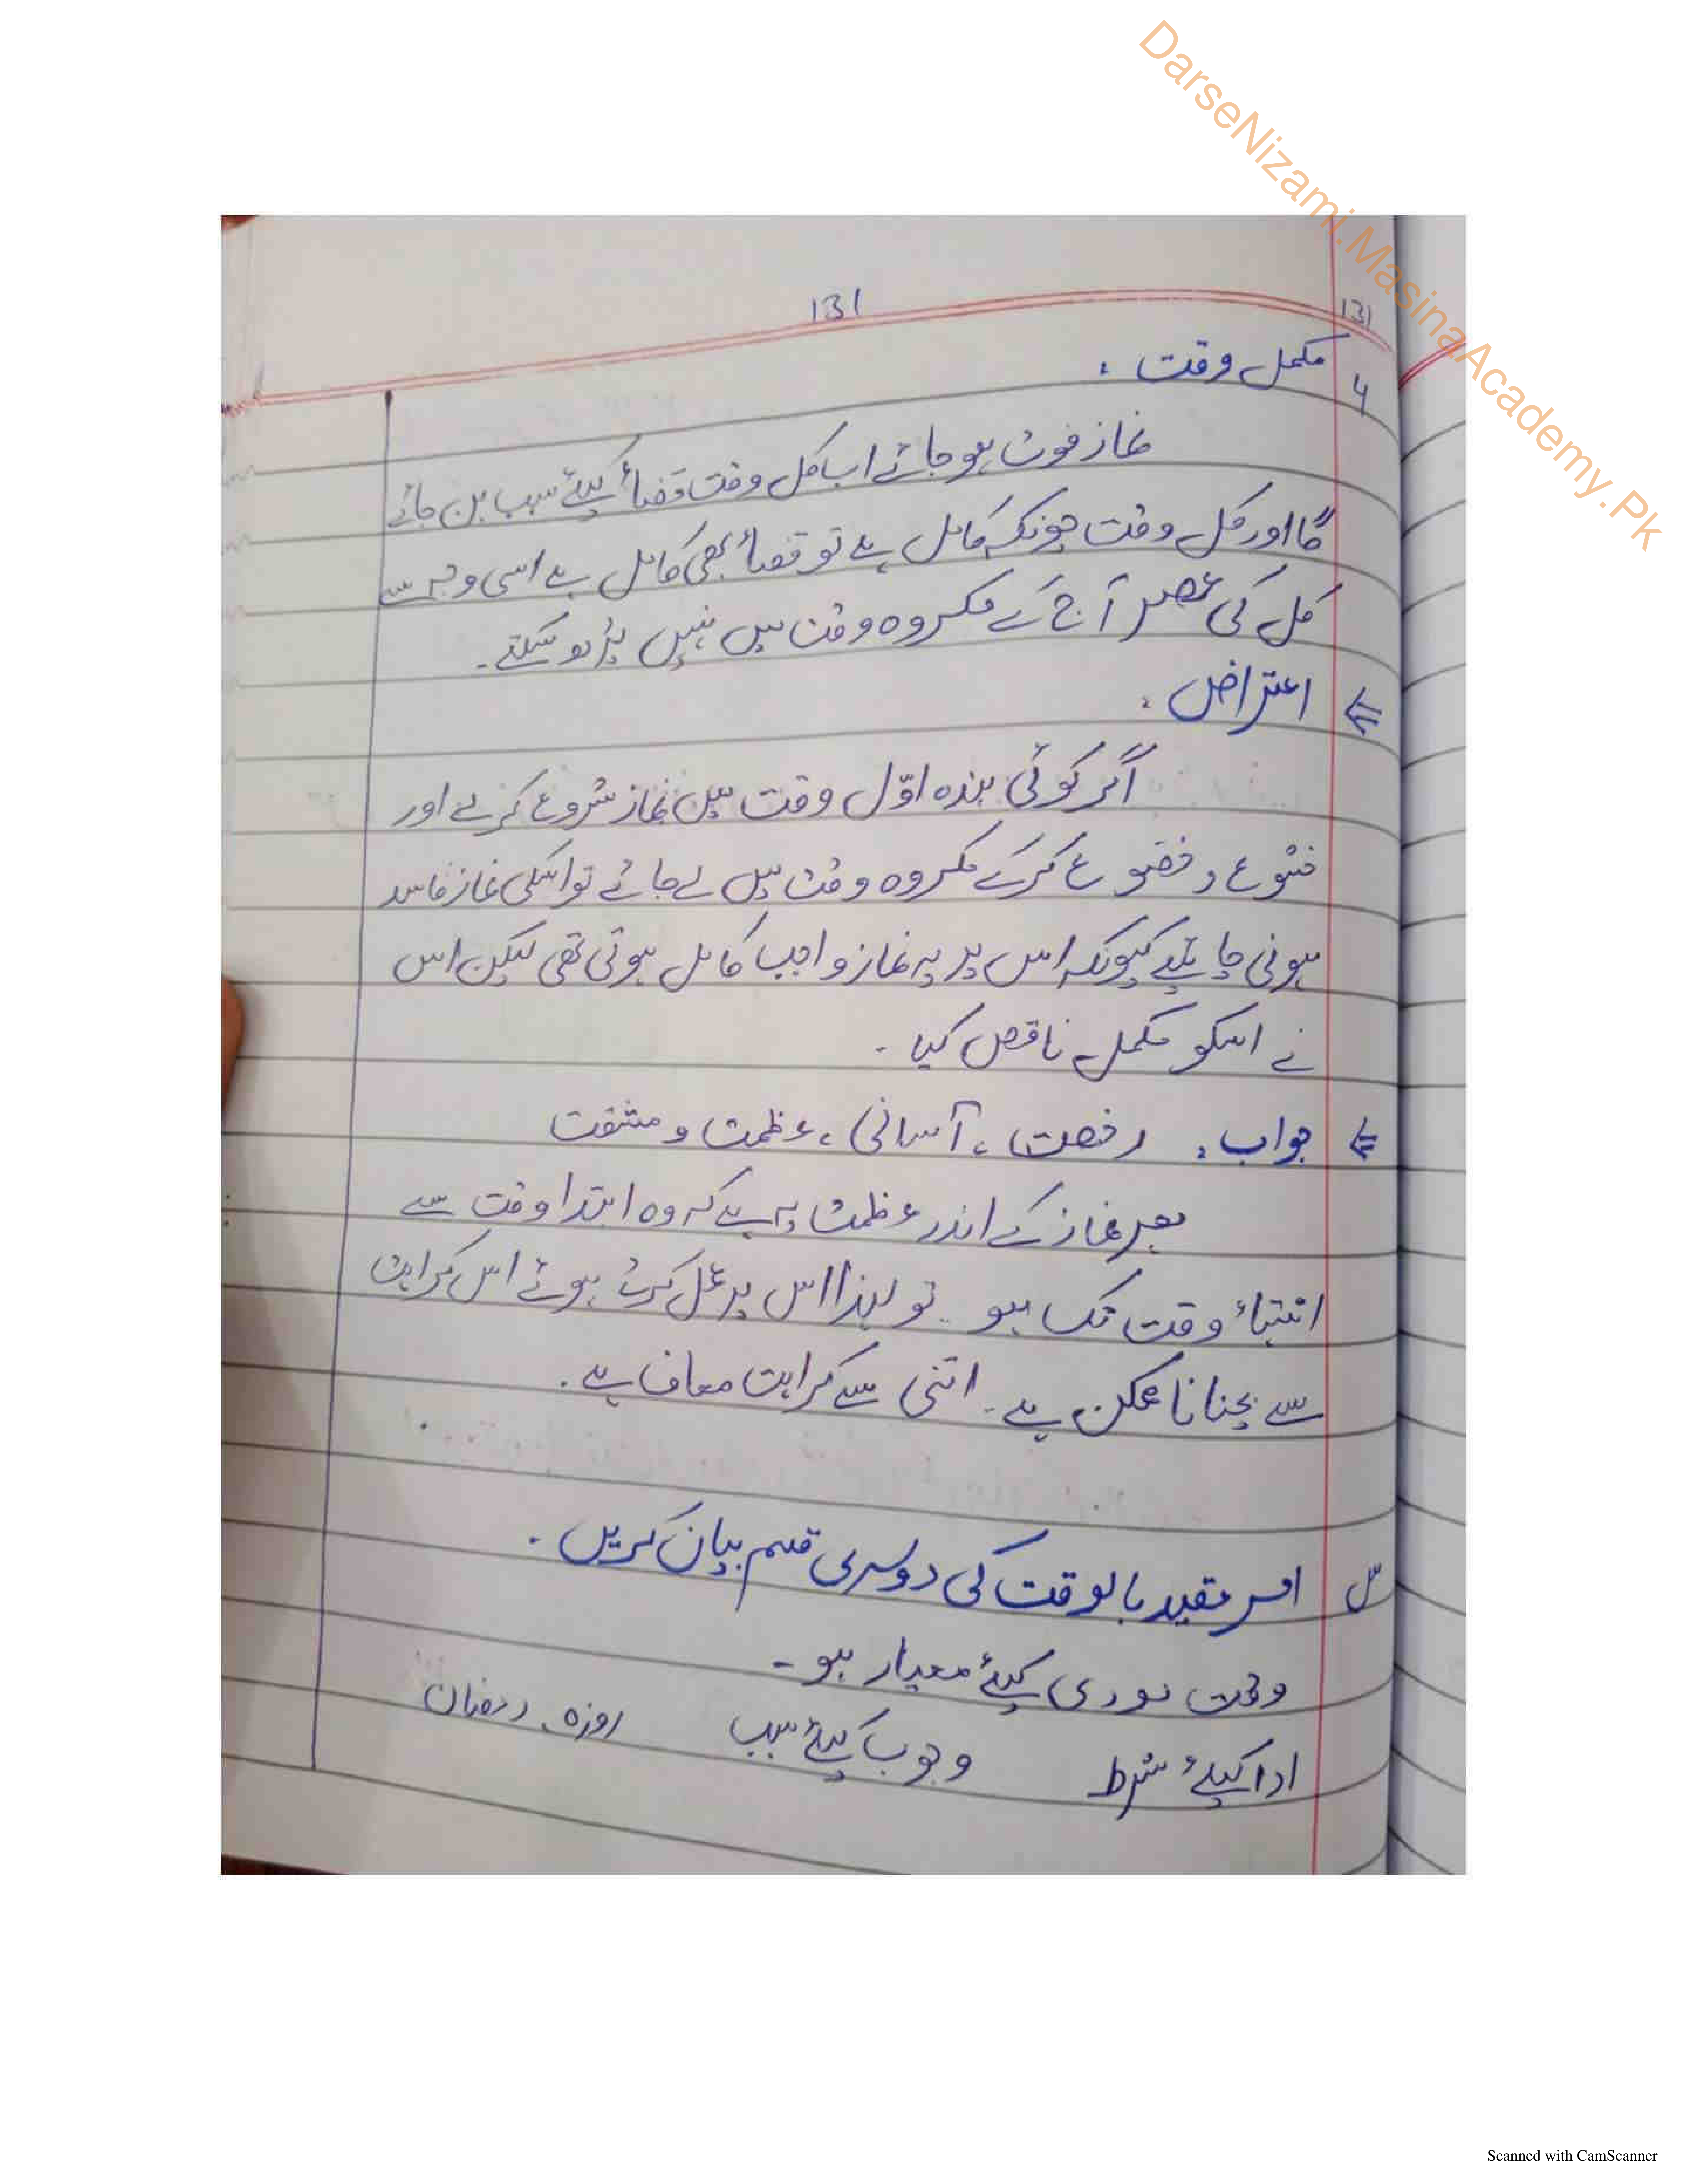 DarseNizami.MasinaAcademy.Pk
131
131
۴ مکمل وقت :
نماز فوت ہو جائے اب کل وقت قضاء کیلئے سبب بن جائے
گا اور کل وقت چونکہ کامل ہے تو قضاء بھی کامل ہے اسی وجہ سے
کل کی عصر آج کے مکروہ وقت میں نہیں پڑھ سکتے۔
⇐ اعتراض :
اگر کوئی بندہ اوّل وقت میں نماز شروع کرے اور
خشوع و خضوع کرکے مکروہ وقت میں لے جائے تو اسکی نماز فاسد
ہونی چاہئیے کیونکہ اس پر یہ نماز واجب کامل ہوئی تھی لیکن اس
نے اسکو مکمل ناقص کیا ۔
⇐ جواب : رخصت ، آسانی ، عظمت و مشقت
نماز کے اندر عظمت یہ ہے کہ وہ ابتدا وقت سے
انتہاء وقت تک ہو ۔ تو لہذا اس پر عمل کرتے ہوئے اس کراہت
سے بچنا ناممکن ہے ۔ اتنی سے کراہت معاف ہے ۔
س امر مقید بالوقت کی دوسری قسم بیان کریں ۔
وقت مودی کیلئے معیار ہو ۔
ادا کیلئے شرط وجوب کیلئے سبب روزہ رمضان
Scanned with CamScanner